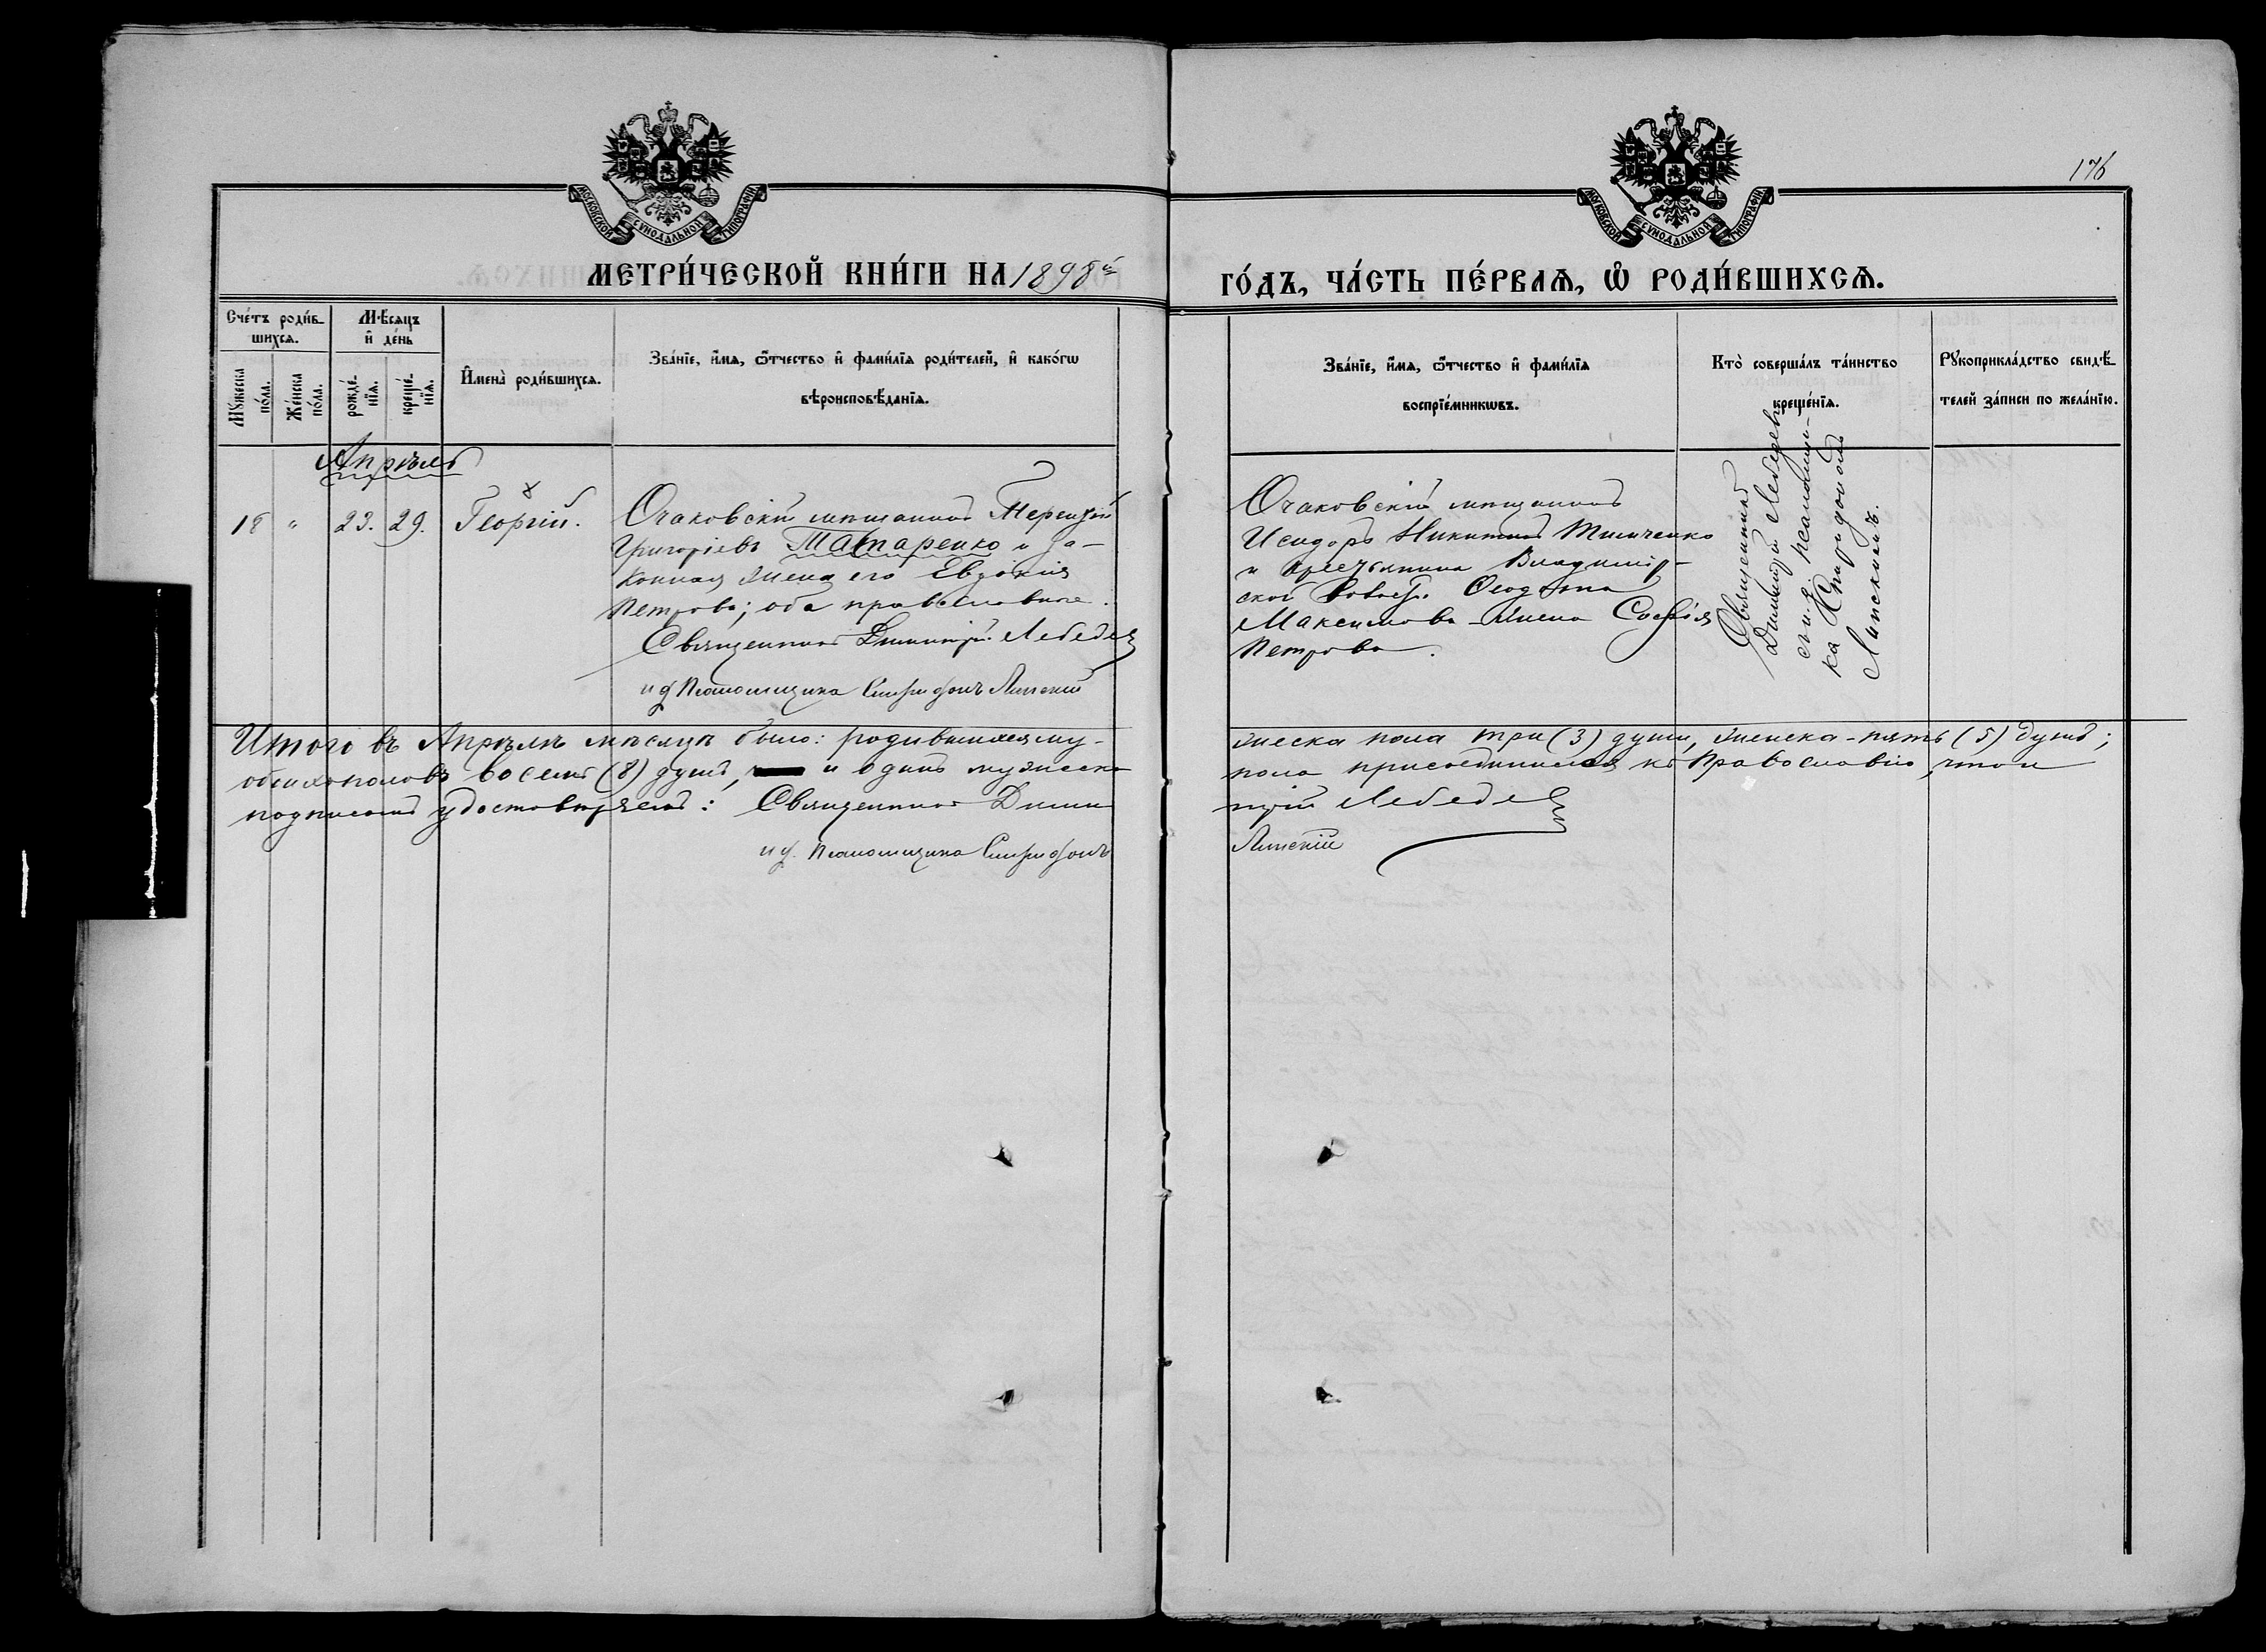 176
МОСКОВСКОЙ СѴНОДАЛЬНОЙ ТИПОГРАФІИ
МОСКОВСКОЙ СѴНОДАЛЬНОЙ ТИПОГРАФІИ
МЕТРИ́ЧЕСКОЙ КНИ́ГИ НА 1898й
ГО́ДЪ, ЧА́СТЬ ПЕ́РВАѦ, Ѡ҆ РОДИ́ВШИХСѦ.
Сче́тъ роди́в-
шихсѧ.
Мѣ́сѧцъ
и҆ де́нь
Мꙋ́жеска
по́ла.
Же́нска
по́ла.
рожде́-
нїѧ.
креще́-
нїѧ.
И҆мена̀ роди́вшихсѧ.
Зва́нїе, и҆́мѧ, ѻ҆́тчество и҆ фами́лїѧ роди́телей, и҆ како́гѡ
вѣроисповѣ́данїѧ.
Зва́нїе, и҆́мѧ, ѻ҆́тчество и҆ фами́лїѧ
воспрїе́мникѡвъ.
Кто̀ соверша́лъ та́инство
креще́нїѧ.
Рꙋкоприкла́дство свидѣ́-
телей за́писи по жела́нїю.
Апрѣль
18 " 23. 29. Георгій.
Очаковскій мѣщанинъ Терентій
Григоріевъ Татаренко и за-
конная жена его Евдокія
Петрова; оба православные.
Священникъ Димитрій Лебедев
и д Псаломщика Спиридонъ Липскій
Очаковскій мѣщанинъ
Исидоръ Никитинъ Тимченко
и крестьянина Владимір-
ской Ѳеодота
Максимова жена Софія
Петрова.
Священникъ
Димитрій Лебедевъ
съ и. д. псаломщи-
ка Спиридономъ
Липскимъ.
Итого въ Апрѣлѣ мѣсяцѣ было: родившихся му-
жеска пола три (3) души, женска - пять (5) душъ;
обоихъ половъ восемь (8) душъ, и одинъ мужеска
пола присоединился къ Православію, что и
подписомъ удостовѣряемъ: Священникъ Дими
трій Лебедев
и д. Псаломщика Спиридонъ
Липскій